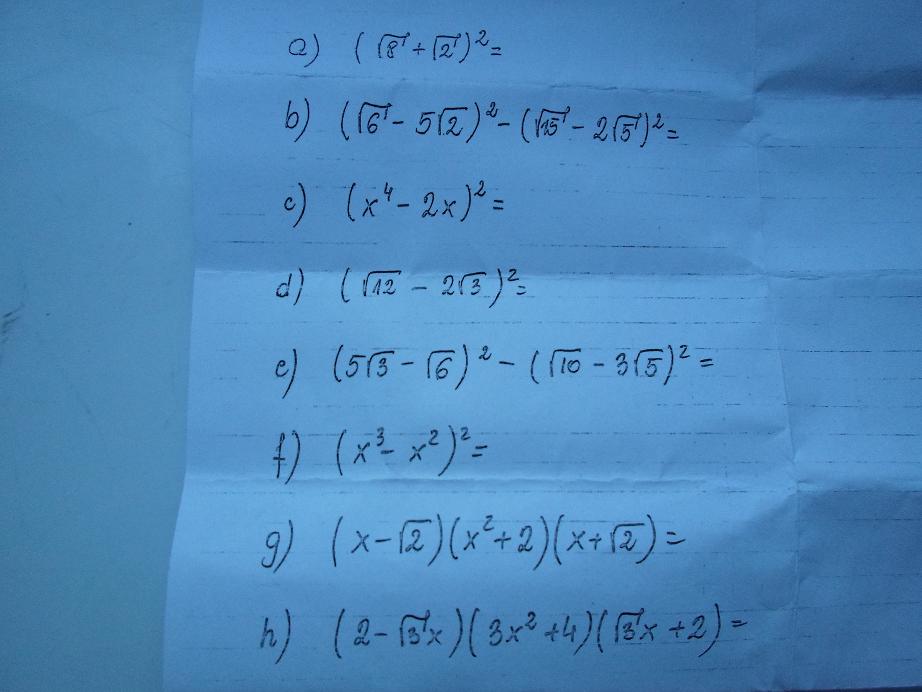 a) (√8 + √2)² =
b) (√6 - 5√2)² - (√15 - 2√5)² =
c) (x⁴ - 2x)² =
d) (√12 - 2√3)² =
e) (5√3 - √6)² - (√10 - 3√5)² =
f) (x³ - x²)² =
g) (x - √2)(x² + 2)(x + √2) =
h) (2 - √3x)(3x² + 4)(√3x + 2) =